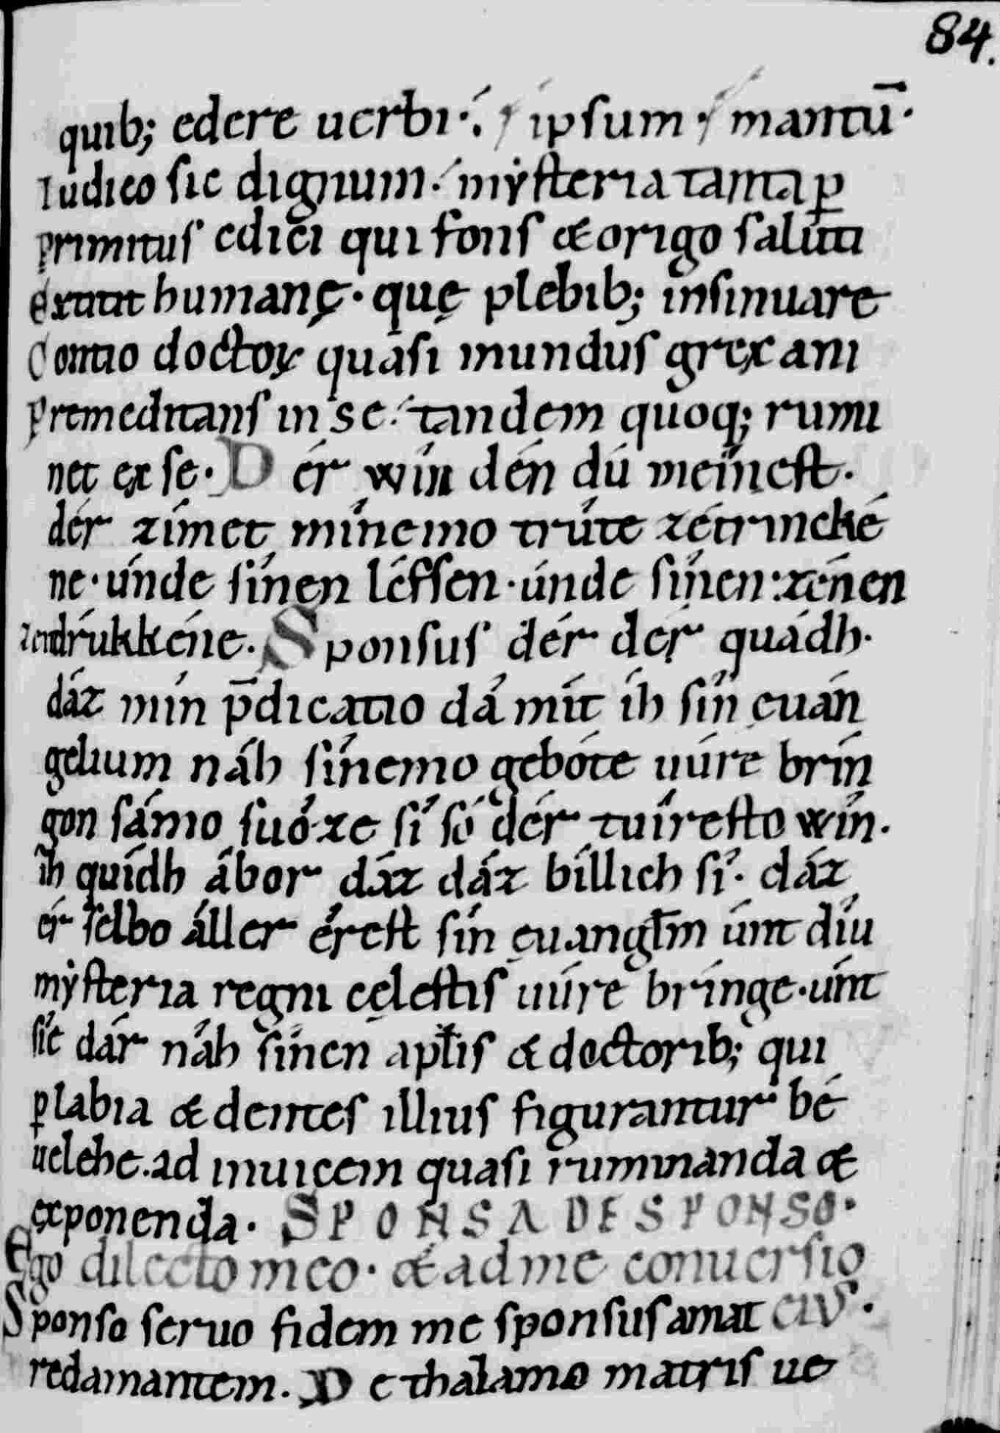 84.
quib; edere uerbi·ipsum·mantū·
Iudico sic dignum·mẏsteria tanta p̲
primitus edici qui fons & origo saluti
Extitit humanę·quę plebib; insinuare
Contio doctor quasi mundus grex ani
Premeditans in se·tandem quoq; rumi
net ex se·Dér wín dén dú meínest·
dér zímet mínemo trûte zétrincké
ne·únde sínen léfsen·únde sínen:zénen
zendrúkkéne. Sponsus dér dér quádh·
dáz mín p̄dicatio dá mít íh sín euán
gelium náh sínemo gebóte uúre brín
gon sámo suóze sí só dér tuíresto wín·
íh quídh ábor dáz dáz bíllich sí·dáz
ér selbo áller érest sín euangl̄m únt díu
mẏsteria regni cęlestis uúre brínge·únt
síe dár náh sínen apl̄is & doctorib; qui
p̲ labia & dentes illius figurantur bé
uelehe·ad inuicem quasi ruminanda &
exponenda· SPONSA DE SPONSO·
Ego dilecto meo·& ad me conuersio
Sponso seruo fidem me sponsus amat EIVS·
redamantem. De thalamo matris ue